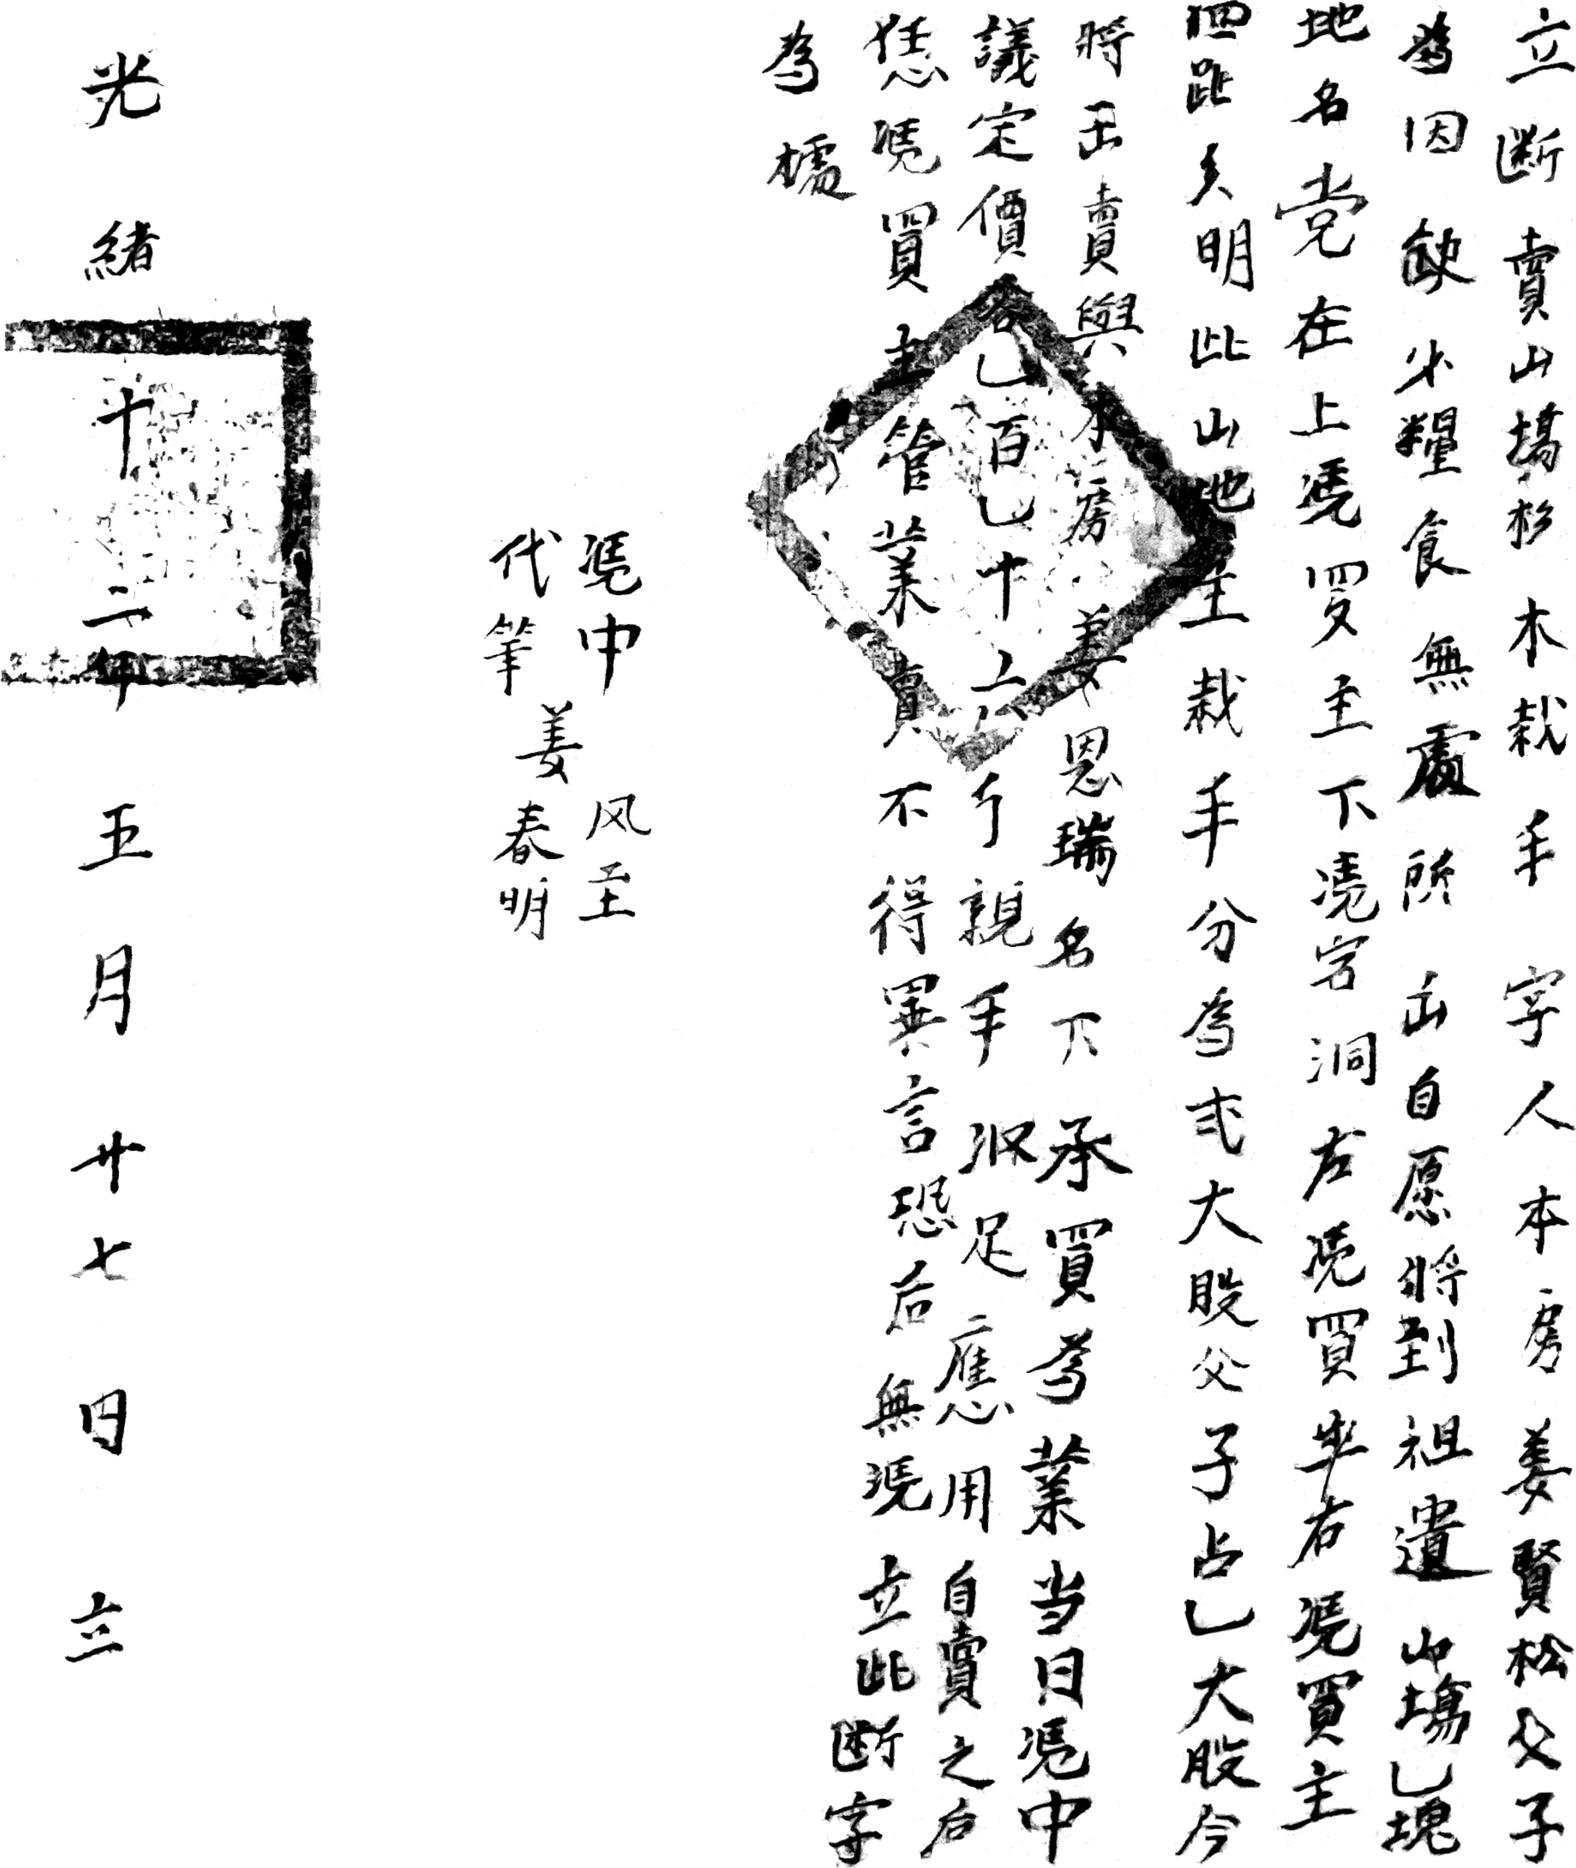 立斷賣山塲杉木栽手字人本房姜賢松父子
為因缺少糧食無處所出自愿將到祖遺山塲乙塊
地名党在上凴買主下凴宕洞左凴買主右凴買主
四趾分明此山地主栽手分為弍大股父子占乙大股今
將出賣與本房姜恩瑞名下承買為業当日凴中
議定價谷乙百乙十六斤親手收足應用自賣之后
恁凴買主管業賣不得異言恐后無凴立此断字
為據
凴中 凤至
代筆 姜春明
光緒十二年五月廿七日立